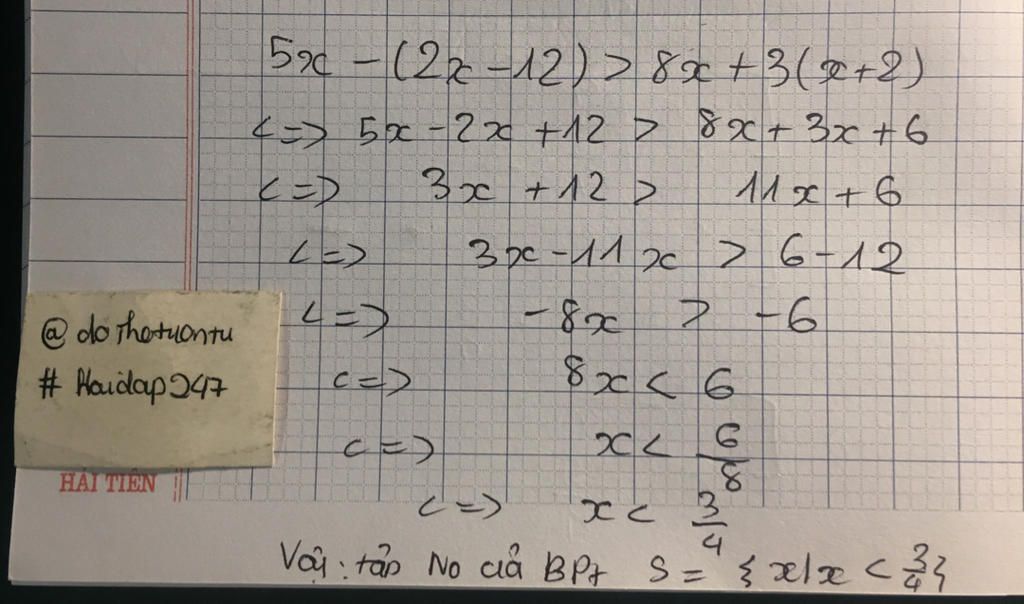 5x - (2x - 12) > 8x + 3(x + 2)
<=> 5x - 2x + 12 > 8x + 3x + 6
<=> 3x + 12 > 11x + 6
<=> 3x - 11x > 6 - 12
<=> -8x > -6
<=> 8x < 6
<=> x < 6/8
<=> x < 3/4
Vậy: tập No của BPt S = { x | x < 3/4 }
@ dothotuontu
# Hoidap247
HẢI TIẾN